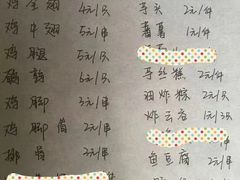 鸡全翅 4元/只
鸡中翅 5元/串
鸡腿 5元/只
鹌鹑 6元/只
鸡脚 3元/串
鸡脚筋 2元/串
排骨 2元/串
芋头 2元/件
番薯 1元/件
芋丝糕 2元/件
油炸粽 2元/只
炸云吞 1元/3只
白豆腐 2元/件